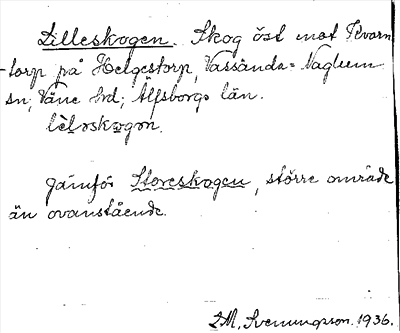 Lilleskogen. Skog öst mot Kvarn
-torp på Helgestorp, Vassända-Naglum
sn, Väne hd; Älfsborgs län.
Jämför Storeskogen, större område
än ovanstående.
I.M. Svenungsson. 1936.